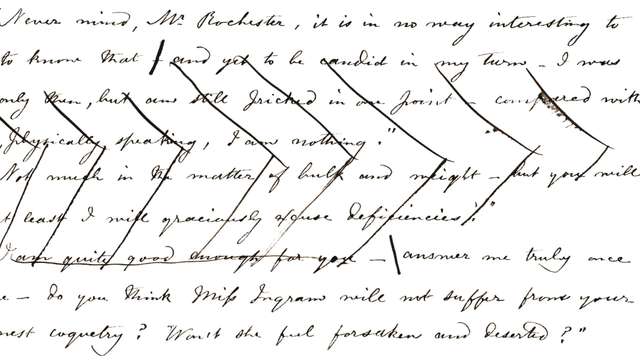 Never mind, Mr Rochester, it is in no way interesting to
to know that - and yet to be candid in my turn - I was
only then, but am still pricked in one point - compared with
physically speaking, I am nothing."
Not much in the matter of bulk and weight - but you will
t least I will graciously excuse deficiencies."
I am quite good enough for you - answer me truly once
e - do you think Miss Ingram will not suffer from your
nest coquetry? Won't she feel forsaken and deserted?"